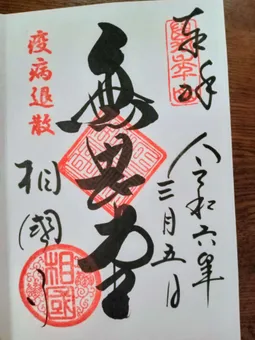 奉拝
令和六年
三月五日
無畏堂
疫病退散
相國寺
相國